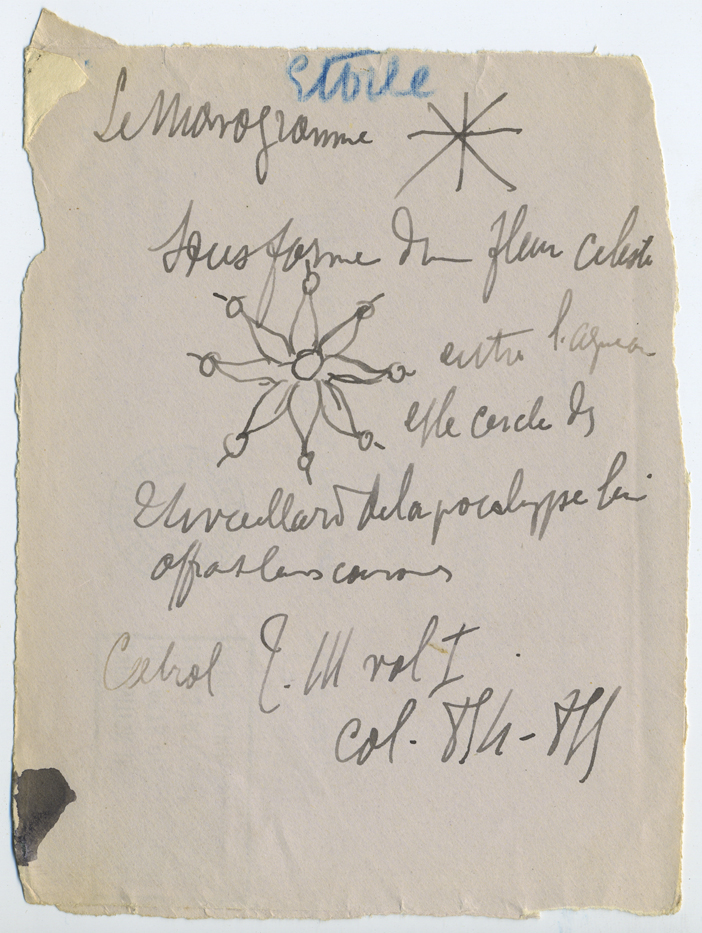 Etoile
Le Monogramme
Sous forme d'un fleur celeste
entre l'agneau
et le cercle ds
vieillard de l'apocalypse lui
offrant leurs couronnes
Cabrol T. III vol I
col.